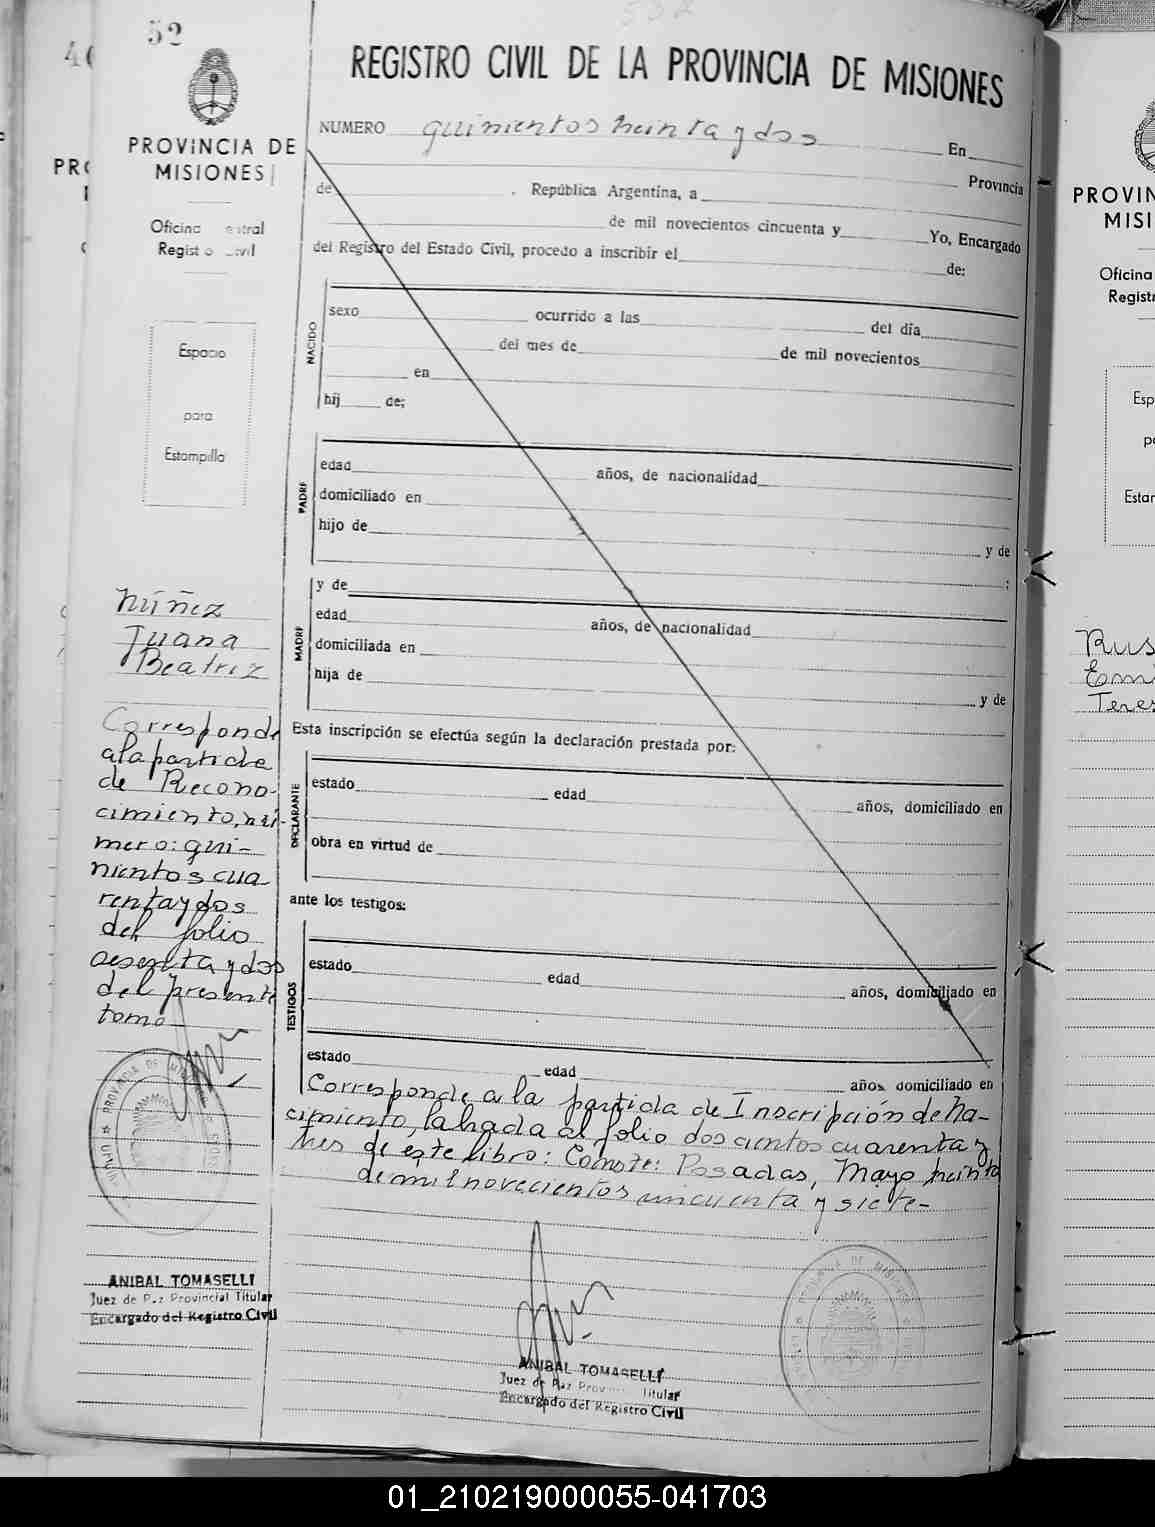 52
532
PROVINCIA DE
MISIONES
Oficina Central
Registro Civil
Espacio
para
Estampilla
Núñez
Juana
Beatriz
Corresponde
a la partida
de Recono-
cimiento, nú-
mero: qui-
nientos cua-
renta y dos
del folio
sesenta y dos
del presente
tomo
ANIBAL TOMASELLI
Juez de Paz Provincial Titular
Encargado del Registro Civil
REGISTRO CIVIL DE LA PROVINCIA DE MISIONES
NUMERO quinientos treinta y dos En
Provincia
de . República Argentina, a
de mil novecientos cincuenta y Yo, Encargado
del Registro del Estado Civil, procedo a inscribir el de:
NACIDO
sexo ocurrido a las del día
del mes de de mil novecientos
en
hij de;
PADRE
edad años, de nacionalidad
domiciliado en
hijo de y de
;
y de
MADRE
edad años, de nacionalidad
domiciliada en
hija de y de
Esta inscripción se efectúa según la declaración prestada por:
DECLARANTE
estado edad años, domiciliado en
obra en virtud de
ante los testigos:
TESTIGOS
estado edad años, domiciliado en
estado edad años, domiciliado en
Corresponde a la partida de Inscripción de Na-
cimiento, labrada al folio dos cientos cuarenta y
tres de este libro: Conste: Posadas, Mayo treinta
de mil novecientos cincuenta y siete-
ANIBAL TOMASELLI
Juez de Paz Prov Titular
Encargado del Registro Civil
PROVIN
MISI
Oficina
Regist
Esp
pa
Estan
Rus
Emi
Teres
01_210219000055-041703